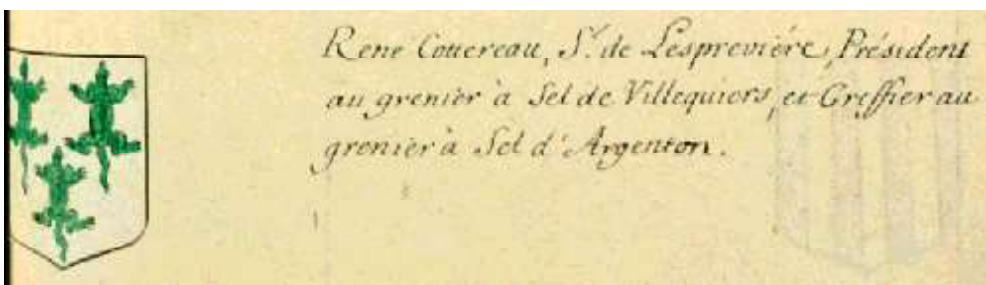 René Couereau, Sr. de Lespreviére, Président
au grenier à Sel de Villequiers, et Greffier au
grenier à Sel d'Argenton.